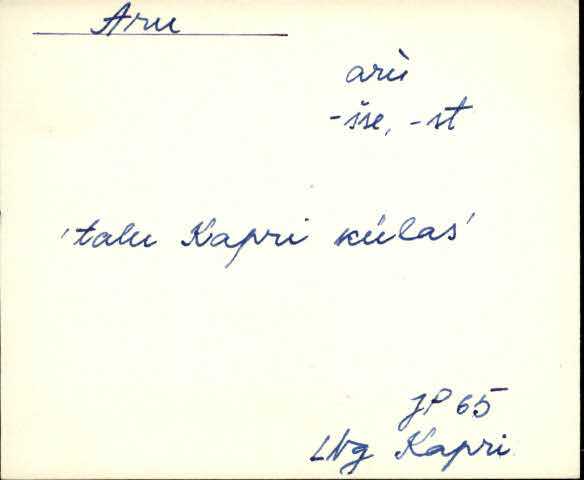 Aru
arù
-šše, -st
'talu Kapri külas'
JP 65
LNg Kapri